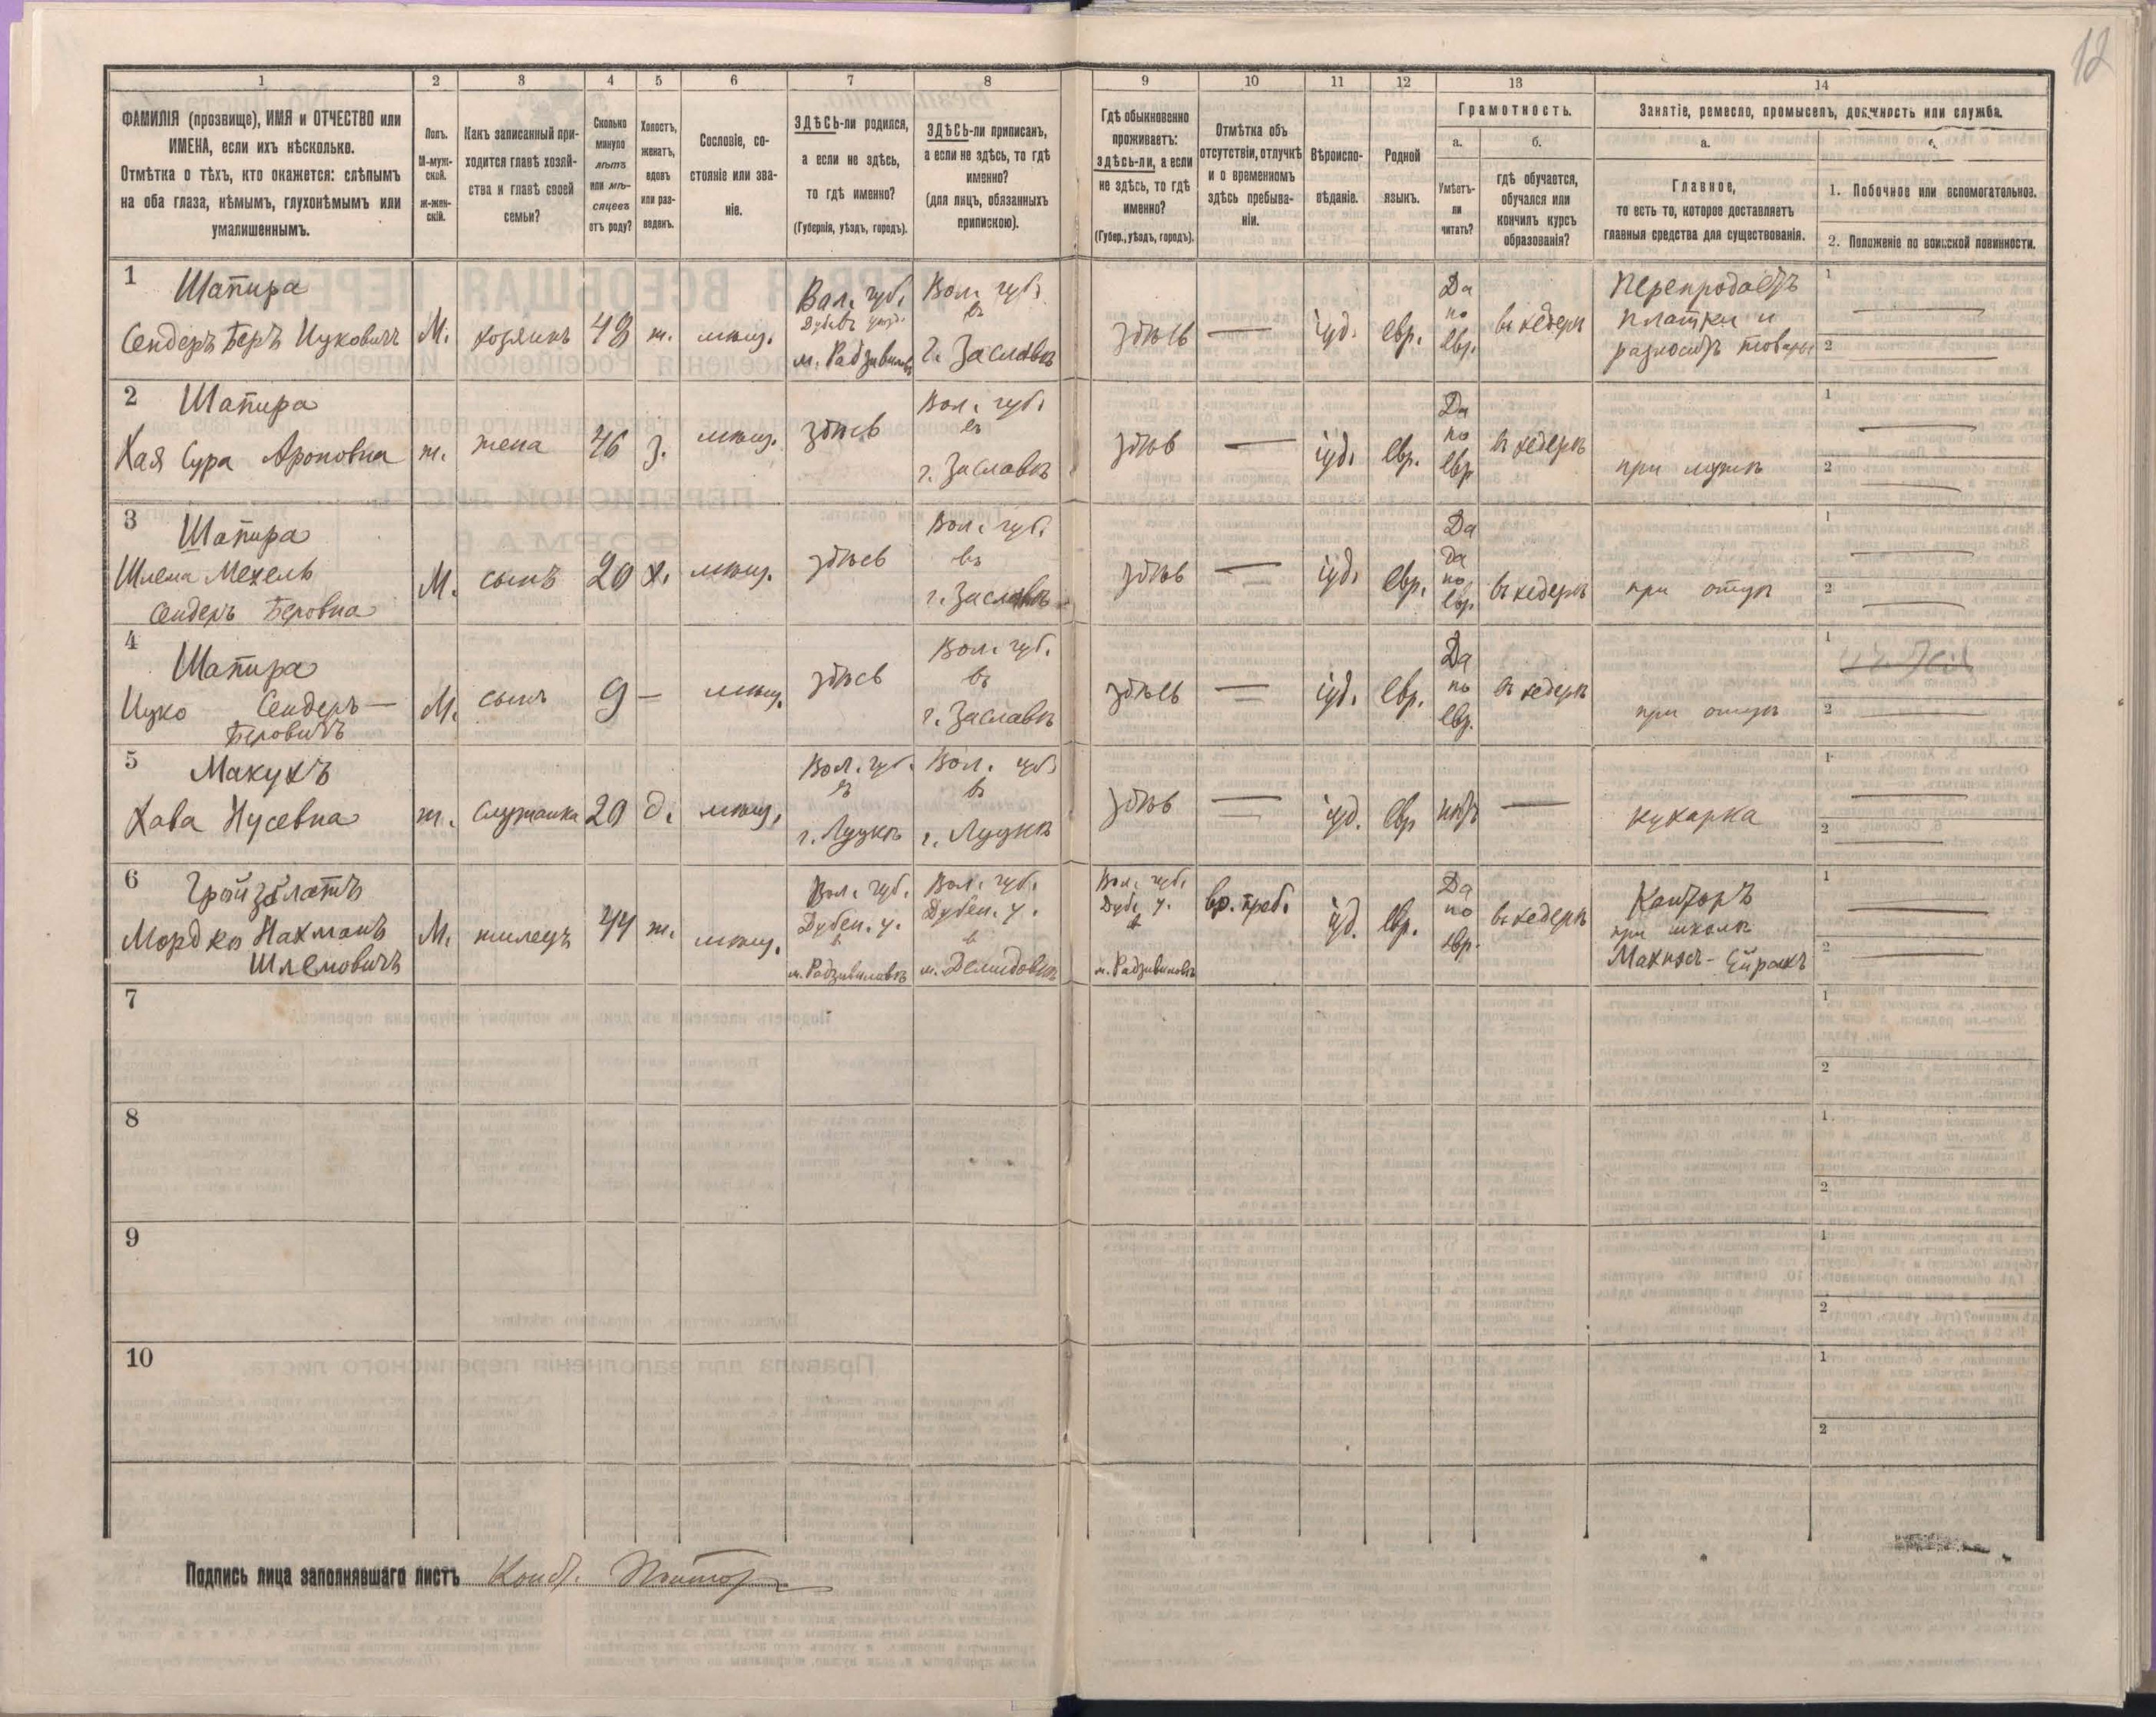 12
1
2
3
4
5
6
7
8
9
10
11
12
13
14
ФАМИЛІЯ (прозвище), ИМЯ и ОТЧЕСТВО или
ИМЕНА, если ихъ нѣсколько.
Отмѣтка о тѣхъ, кто окажется: слѣпымъ
на оба глаза, нѣмымъ, глухонѣмымъ или
умалишеннымъ.
Полъ.
М-муж-
ской.
Ж-жен-
скій.
Какъ записанный при-
ходится главѣ хозяй-
ства и главѣ своей
семьи?
Сколько
минуло
лѣтъ
или мѣ-
сяцевъ
отъ роду?
Холостъ,
женатъ,
вдовъ
или раз-
веденъ.
Сословіе, со-
стояніе или зва-
ніе.
ЗДѢСЬ-ли родился,
а если не здѣсь,
то гдѣ именно?
(Губернія, уѣздъ, городъ).
ЗДѢСЬ-ли приписанъ,
а если не здѣсь, то гдѣ
именно?
(для лицъ, обязанныхъ
припискою).
Гдѣ обыкновенно
проживаетъ:
здѣсь-ли, а если
не здѣсь, то гдѣ
именно?
(Губер., уѣздъ, городъ).
Отмѣтка объ
отсутствіи, отлучкѣ
и о временномъ
здѣсь пребыва-
ніи.
Вѣроиспо-
вѣданіе.
Родной
языкъ.
Грамотность.
а.
Умѣетъ-
ли
читать?
б.
гдѣ обучается,
обучался или
кончилъ курсъ
образованія?
Занятіе, ремесло, промыселъ, должность или служба.
а.
Главное,
то есть то, которое доставляетъ
главныя средства для существованія.
1. Побочное или вспомогательное.
2. Положеніе по воинской повинности.
1
Шапира
Сендеръ Беръ Ицковичъ
М.
хозяинъ
48
ж.
мѣщ.
Вол. губ.
м. Радзивиловѣ
Вол. губ.
въ
г. Заславѣ
здѣсь
—
іуд.
евр.
Да
по
евр.
въ хедерѣ
Перепродаетъ
платки и
1
2
2
Шапира
Хая Сура Ароновна
ж.
жена
46
з.
мѣщ.
здѣсь
Вол. губ.
въ
г. Заславѣ
здѣсь
—
іуд.
евр.
Да
по
евр
въ хедерѣ
при мужѣ
1
2
3
Шапира
Шлема Мехель
Сендеръ Беровна
М.
сынъ
20
х.
мѣщ.
здѣсь
Вол. губ.
въ
г. Заславѣ
здѣсь
—
іуд.
евр.
Да
да
по
евр
въ хедерѣ
при отцѣ
1
2
4
Шапира
Ицко Сендеръ—
Беровичъ
М.
сынъ
9
—
мѣщ.
здѣсь
Вол. губ.
въ
г. Заславѣ
здѣсь
—
іуд.
евр.
Да
по
евр.
въ хедерѣ
при отцѣ
1
2
5
Макухъ
Хава Нусевна
ж.
служанка
20
д.
мѣщ.
Вол. губ.
въ
г. Луцкѣ
Вол. губ
въ
г. Луцкѣ
здѣсь
—
іуд.
евр
нѣтъ
—
кухарка
1
2
6
Мордко Нахманъ
Шлемовичъ
М.
жилецъ
44
ж.
мѣщ.
Вол. губ.
Дубен. у.
в
м. Радзивиловѣ
Вол. губ.
Дубен. у.
в
м. Демидовкѣ
Вол. губ.
Дуб. у.
в
м. Радзивиловѣ
вр. преб.
іуд.
евр.
Да
по
евр.
въ хедерѣ
Канторъ
при школѣ
1
2
7
1
2
8
1.
2
9
1
2
10
1
2
Подпись лица заполнявшаго листъ